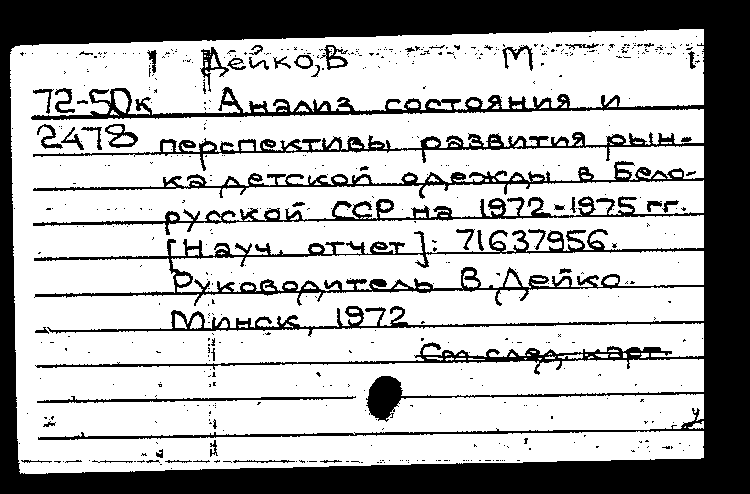 Дейко, В М.
72-50к Анализ состояния и
2478 перспективы развития рын-
ка детской одежды в Бело-
русской ССР на 1972-1975 гг.
[Науч. отчет]: 71637956.
Руководитель В. Дейко.
Минск, 1972.
См след. карт.